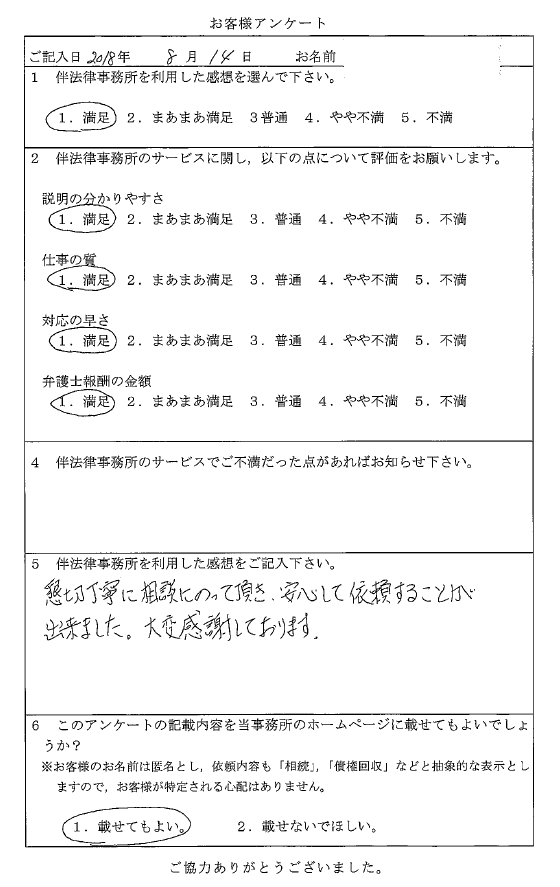 お客様アンケート
ご記入日 2018年 8月 14日 お名前
1 伴法律事務所を利用した感想を選んで下さい。
1．満足 2．まあまあ満足 3普通 4．やや不満 5．不満
2 伴法律事務所のサービスに関し，以下の点について評価をお願いします。
説明の分かりやすさ
1．満足 2．まあまあ満足 3．普通 4．やや不満 5．不満
仕事の質
1．満足 2．まあまあ満足 3．普通 4．やや不満 5．不満
対応の早さ
1．満足 2．まあまあ満足 3．普通 4．やや不満 5．不満
弁護士報酬の金額
1．満足 2．まあまあ満足 3．普通 4．やや不満 5．不満
4 伴法律事務所のサービスでご不満だった点があればお知らせ下さい。
5 伴法律事務所を利用した感想をご記入下さい。
懇切丁寧に相談にのって頂き、安心して依頼することが
出来ました。大変感謝しております。
6 このアンケートの記載内容を当事務所のホームページに載せてもよいでしょ
うか？
※お客様のお名前は匿名とし，依頼内容も「相続」，「債権回収」などと抽象的な表示とし
ますので，お客様が特定される心配はありません。
1．載せてもよい。 2．載せないでほしい。
ご協力ありがとうございました。